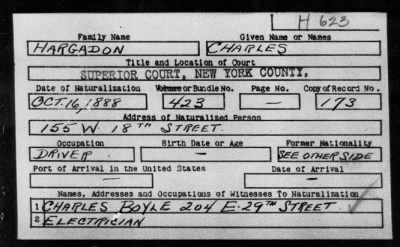 H 623
Family Name Given Name or Names
HARGADON CHARLES
Title and Location of Court
SUPERIOR COURT, NEW YORK COUNTY.
Date of Naturalization Volume or Bundle No. Page No. Copy of Record No.
OCT. 16, 1888 423 — 173
Address of Naturalized Person
155 W. 18TH STREET
Occupation Birth Date or Age Former Nationality
DRIVER — SEE OTHER SIDE
Port of Arrival in the United States Date of Arrival
— —
Names, Addresses and Occupations of Witnesses To Naturalization
1 CHARLES BOYLE 204 E. 29TH STREET
2 ELECTRICIAN